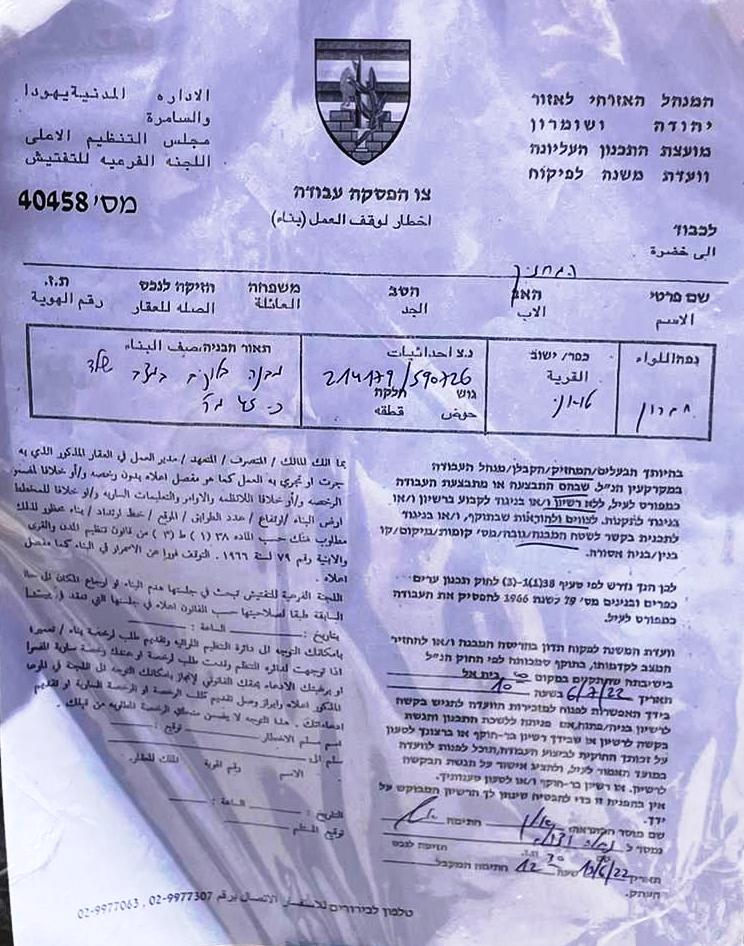 המנהל האזרחי לאזור
יהודה ושומרון
מועצת התכנון העליונה
וועדת משנה לפיקוח
الاداره المدنية يهودا
والسامرة
مجلس التنظيم الاعلى
اللجنه الفرعيه للتفتيش
צו הפסקת עבודה
اخطار لوقف العمل (بناء)
מס' 40458
לכבוד
الى حضرة
המחזיק
שם פרטי האב הסב משפחה הזיקה לנכס ת.ז.
الاسم الاب الجد العائلة الصله للعقار رقم الهوية
נפה/اللواء כפר/ ישוב נ.צ احداثيات תאור הבניה/صيف البناء
القرية
214179/590726
חברון
גוש חלקה
حوض قطقه
מבנה
שלד
כ- 45 מ"ר
בהיותך הבעלים/המחזיק/הקבלן/מנהל העבודה
במקרקעין הנ"ל, שבהם התבצעה או מתבצעת העבודה
כמפורט לעיל, ללא רשיון ו/או בניגוד לקבוע ברשיון ו/או
בניגוד לתקנות, לצווים ולהוראות שבתוקף, ו/או בניגוד
לתכנית בקשר לשטח המבנה/גובה/מס' קומות/מיקום/קו
בנין/בניה אסורה.
לכן הנך נדרש לפי סעיף 38(1)-(3) לחוק תכנון ערים
כפרים ובנינים מס' 79 לשנת 1966 להפסיק את העבודה
כמפורט לעיל.
וועדת המשנה לפקוח תדון בהריסת המבנה ו/או להחזיר
המצב לקדמותו, בתוקף סמכותה לפי החוק הנ"ל
בישיבתה שתתקיים במקום בית אל
תאריך 6/7/22 בשעה 10
בידך האפשרות לפנות למזכירות הוועדה להגיש בקשה
לרשיון בניה/פתוח, אם פנית ללשכת התכנון והגשת
בקשה לרשיון או שבידך רשיון בר-תוקף או ברצונך לטעון
על זכותך החוקית לביצוע העבודה, תוכל לפנות לוועדה
במועד האמור לעיל, ולהציג אישור על הגשת הבקשה
לרשיון, או רשיון בר-תוקף ו/או לטעון טענותיך.
אין בהפנית זו כדי להבטיח שינתן לך הרשיון המבוקש על
ידך.
שם מוסר ההוראה חתימה
נמסר ל
ת.ז. הזיקה לנכס
תאריך 13/6/22 שעה 12 חתימת המקבל
העתק.
بما انك المالك / المتصرف / المتعهد / مدير العمل في العقار المذكور الذي به
جرت او تجري به العمل كما هو مفصل اعلاه بدون رخصه و/او خلافا
الرخصه و/او خلافا للانظمه والاوامر والتعليمات الساريه و/او خلافا للمخطط
البناء /ارتفاع / عدد الطوابق / الموقع / خط ارتداد / بناء محظور لذلك
مطلوب منك حسب الماده ٣٨ (١) ط (٣) من قانون تنظيم المدن والقرى
والابنية رقم ٧٩ لسنة ١٩٦٦. التوقف فورا عن الاستمرار في البناء كما مفصل
اعلاه.
اللجنة الفرعيه للتفتيش تبحث في جلستها هدم البناء او ارجاع المكان الى
السابقة طبقا لصلاحيتها حسب القانون اعلاه في جلستها التي تعقد في
بتاريخ: الساعة:
بامكانك التوجه الى دائرة التنظيم وتقديم طلب لرخصة بناء / تعمير
اسم مسلم الاخطار توقيع:
سلم الى
الاسم رقم الهوية الصلة للعقار.
التاريخ: الساعة:
توقيع المستلم
טלפון לבירורים للاستفسار الاتصال برقم 02-9977307 , 02-9977063